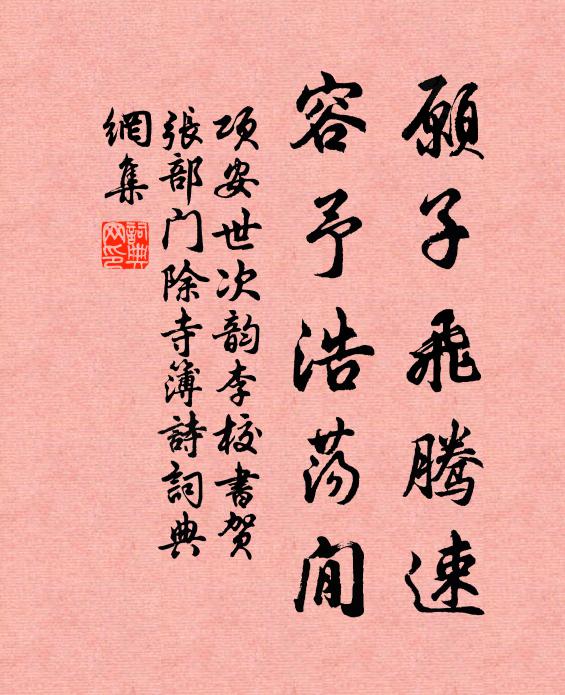 願子飛騰速
容予浩荡閒
项安世次韵李校書贺
張部门除寺簿詩詞典
網集
詞典網印